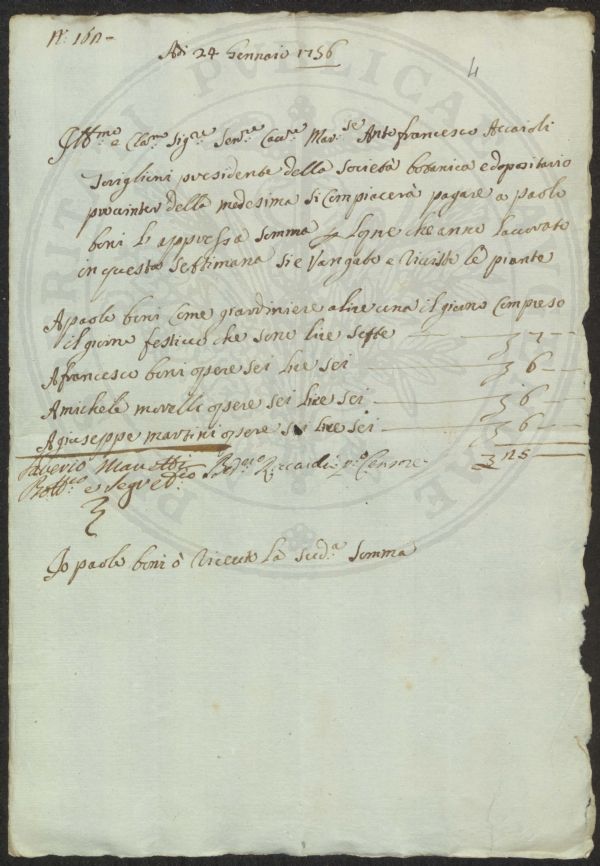 Adi 24 Gennaio 1756
4
Ill.mo e Cla.mo Sig.re Sen.re Cav.re Mar.se Anto francesco Acciaioli
Toriglioni presidente della Società botanica e dopositario
prointer della medesima Si Compiacerà pagare a paolo
boni L appressa Somma p Lopre che anno Lavorato
in questa Settimana Si e Vangato e Viviste le piante
A paolo boni Come giardiniere a lire una il giorno Compreso
il giorno festivo che sono lire Sette 7
A francesco boni opere Sei lire Sei 6
A michele morelli opere Sei lire Sei 6
A giuseppe martini opere Sei lire Sei 6
Saverio Manetti
e Segret.rio Riccardi Censore 25
Io paolo boni ò Riceuto La sud.a Somma